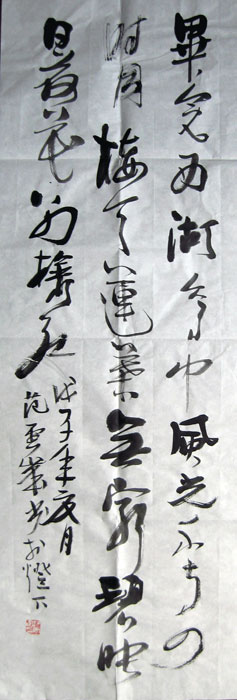 畢竟西湖六月中風光不與四
時同接天蓮葉無窮碧映
日荷花別樣紅
戊子年夏月
范雲於燈下